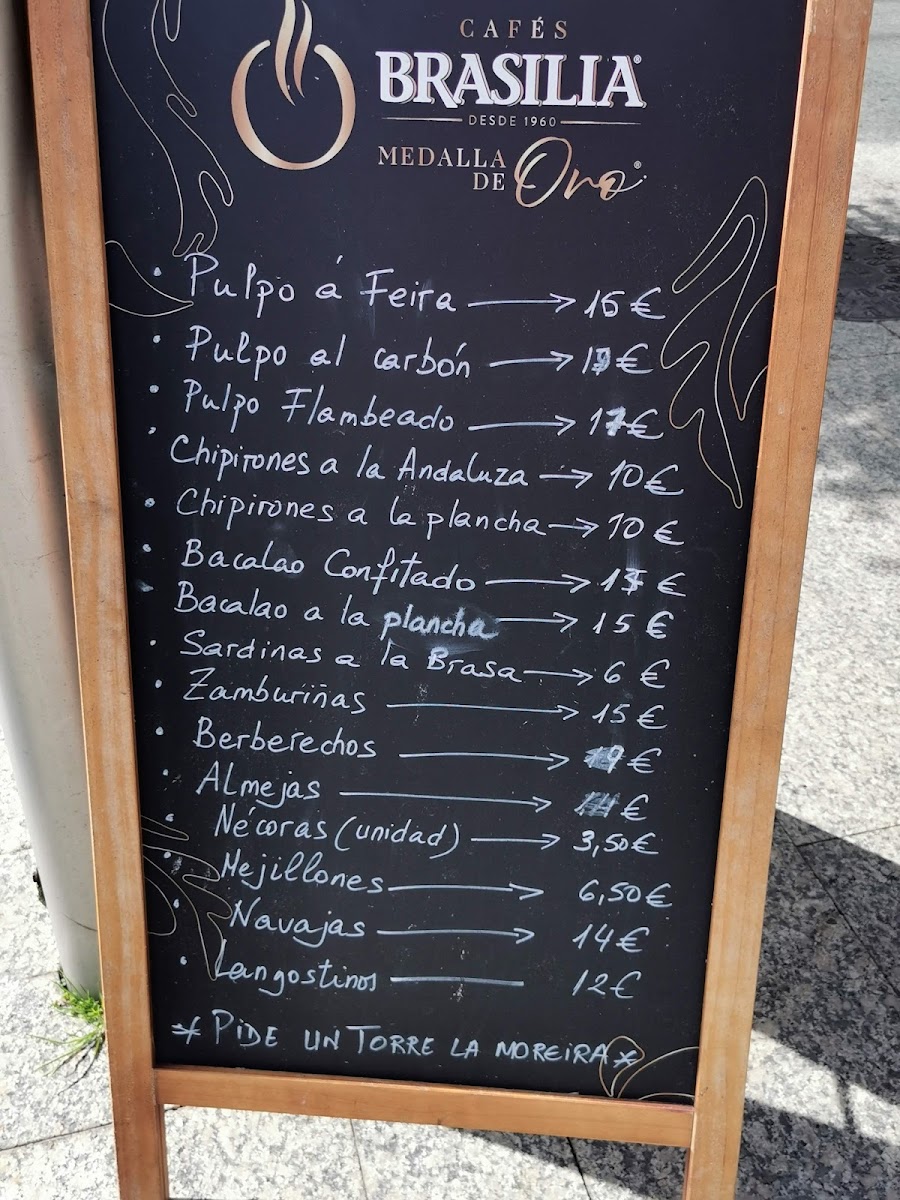 CAFÉS
BRASILIA
DESDE 1960
MEDALLA
DE Oro
Pulpo á Feira 15 €
Pulpo al carbón €
Pulpo Flambeado 17€
Chipirones a la Andaluza 10€
Chipirones a la plancha 10 €
Bacalao Confitado €
Bacalao a la plancha 15 €
Sardinas a la Brasa 6 €
Zamburiñas 15 €
Berberechos €
Almejas €
Nécoras (unidad) 3,50€
Mejillones 6,50€
Navajas 14€
Langostinos 12€
* PIDE UN TORRE LA MOREIRA *